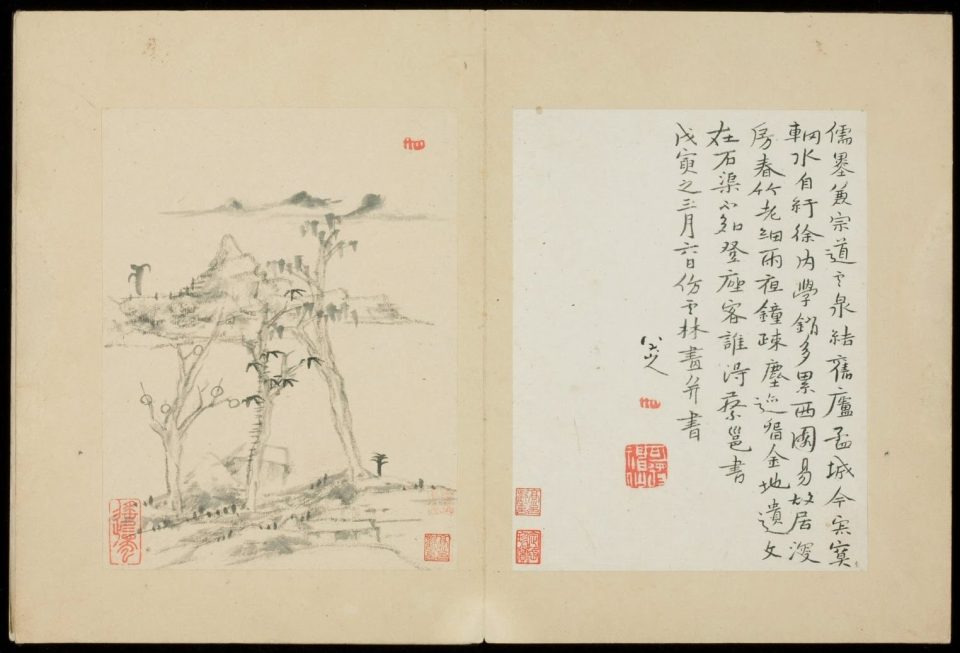 儒墨兼宗道云泉結舊廬孟城今寂寞
輞水自紆徐內學銷多累西園易故居深
房春竹老細雨夜鐘疎塵迹留金地遺文
在石渠不知登座客誰得蔡邕書
戊寅之三月六日仿云林畫并書
八大山人